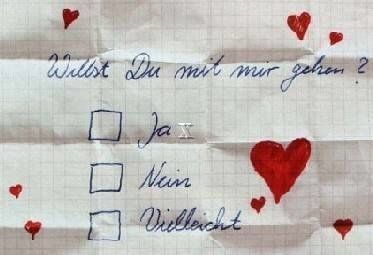 Willst Du mit mir gehen ?
Ja x
Nein
Vielleicht